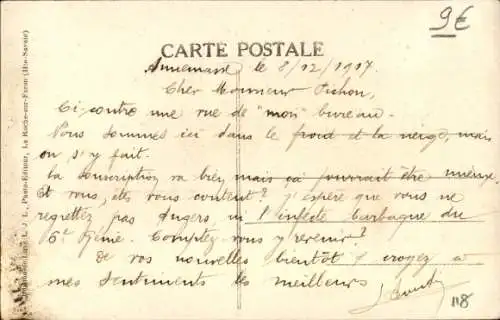 9€
CARTE POSTALE
Annemasse le 8/12/1917.
Cher Monsieur Pichon,
Ci-contre une rue de "mon" bureau.
Nous sommes ici dans le froid et la neige, mais
on s'y fait.
La souscription va bien, mais ça pourrait être mieux
Et vous, êtes vous content? J'espère que vous ne
regrettez pas Angers, ni l'infecte barbaque du
6e Génie. Comptez vous y revenir?
De vos nouvelles bientôt, croyez à
mes sentiments les meilleurs
118
L. J. L., Photo-Editeur, La Roche-sur-Foron (Hte-Savoie)